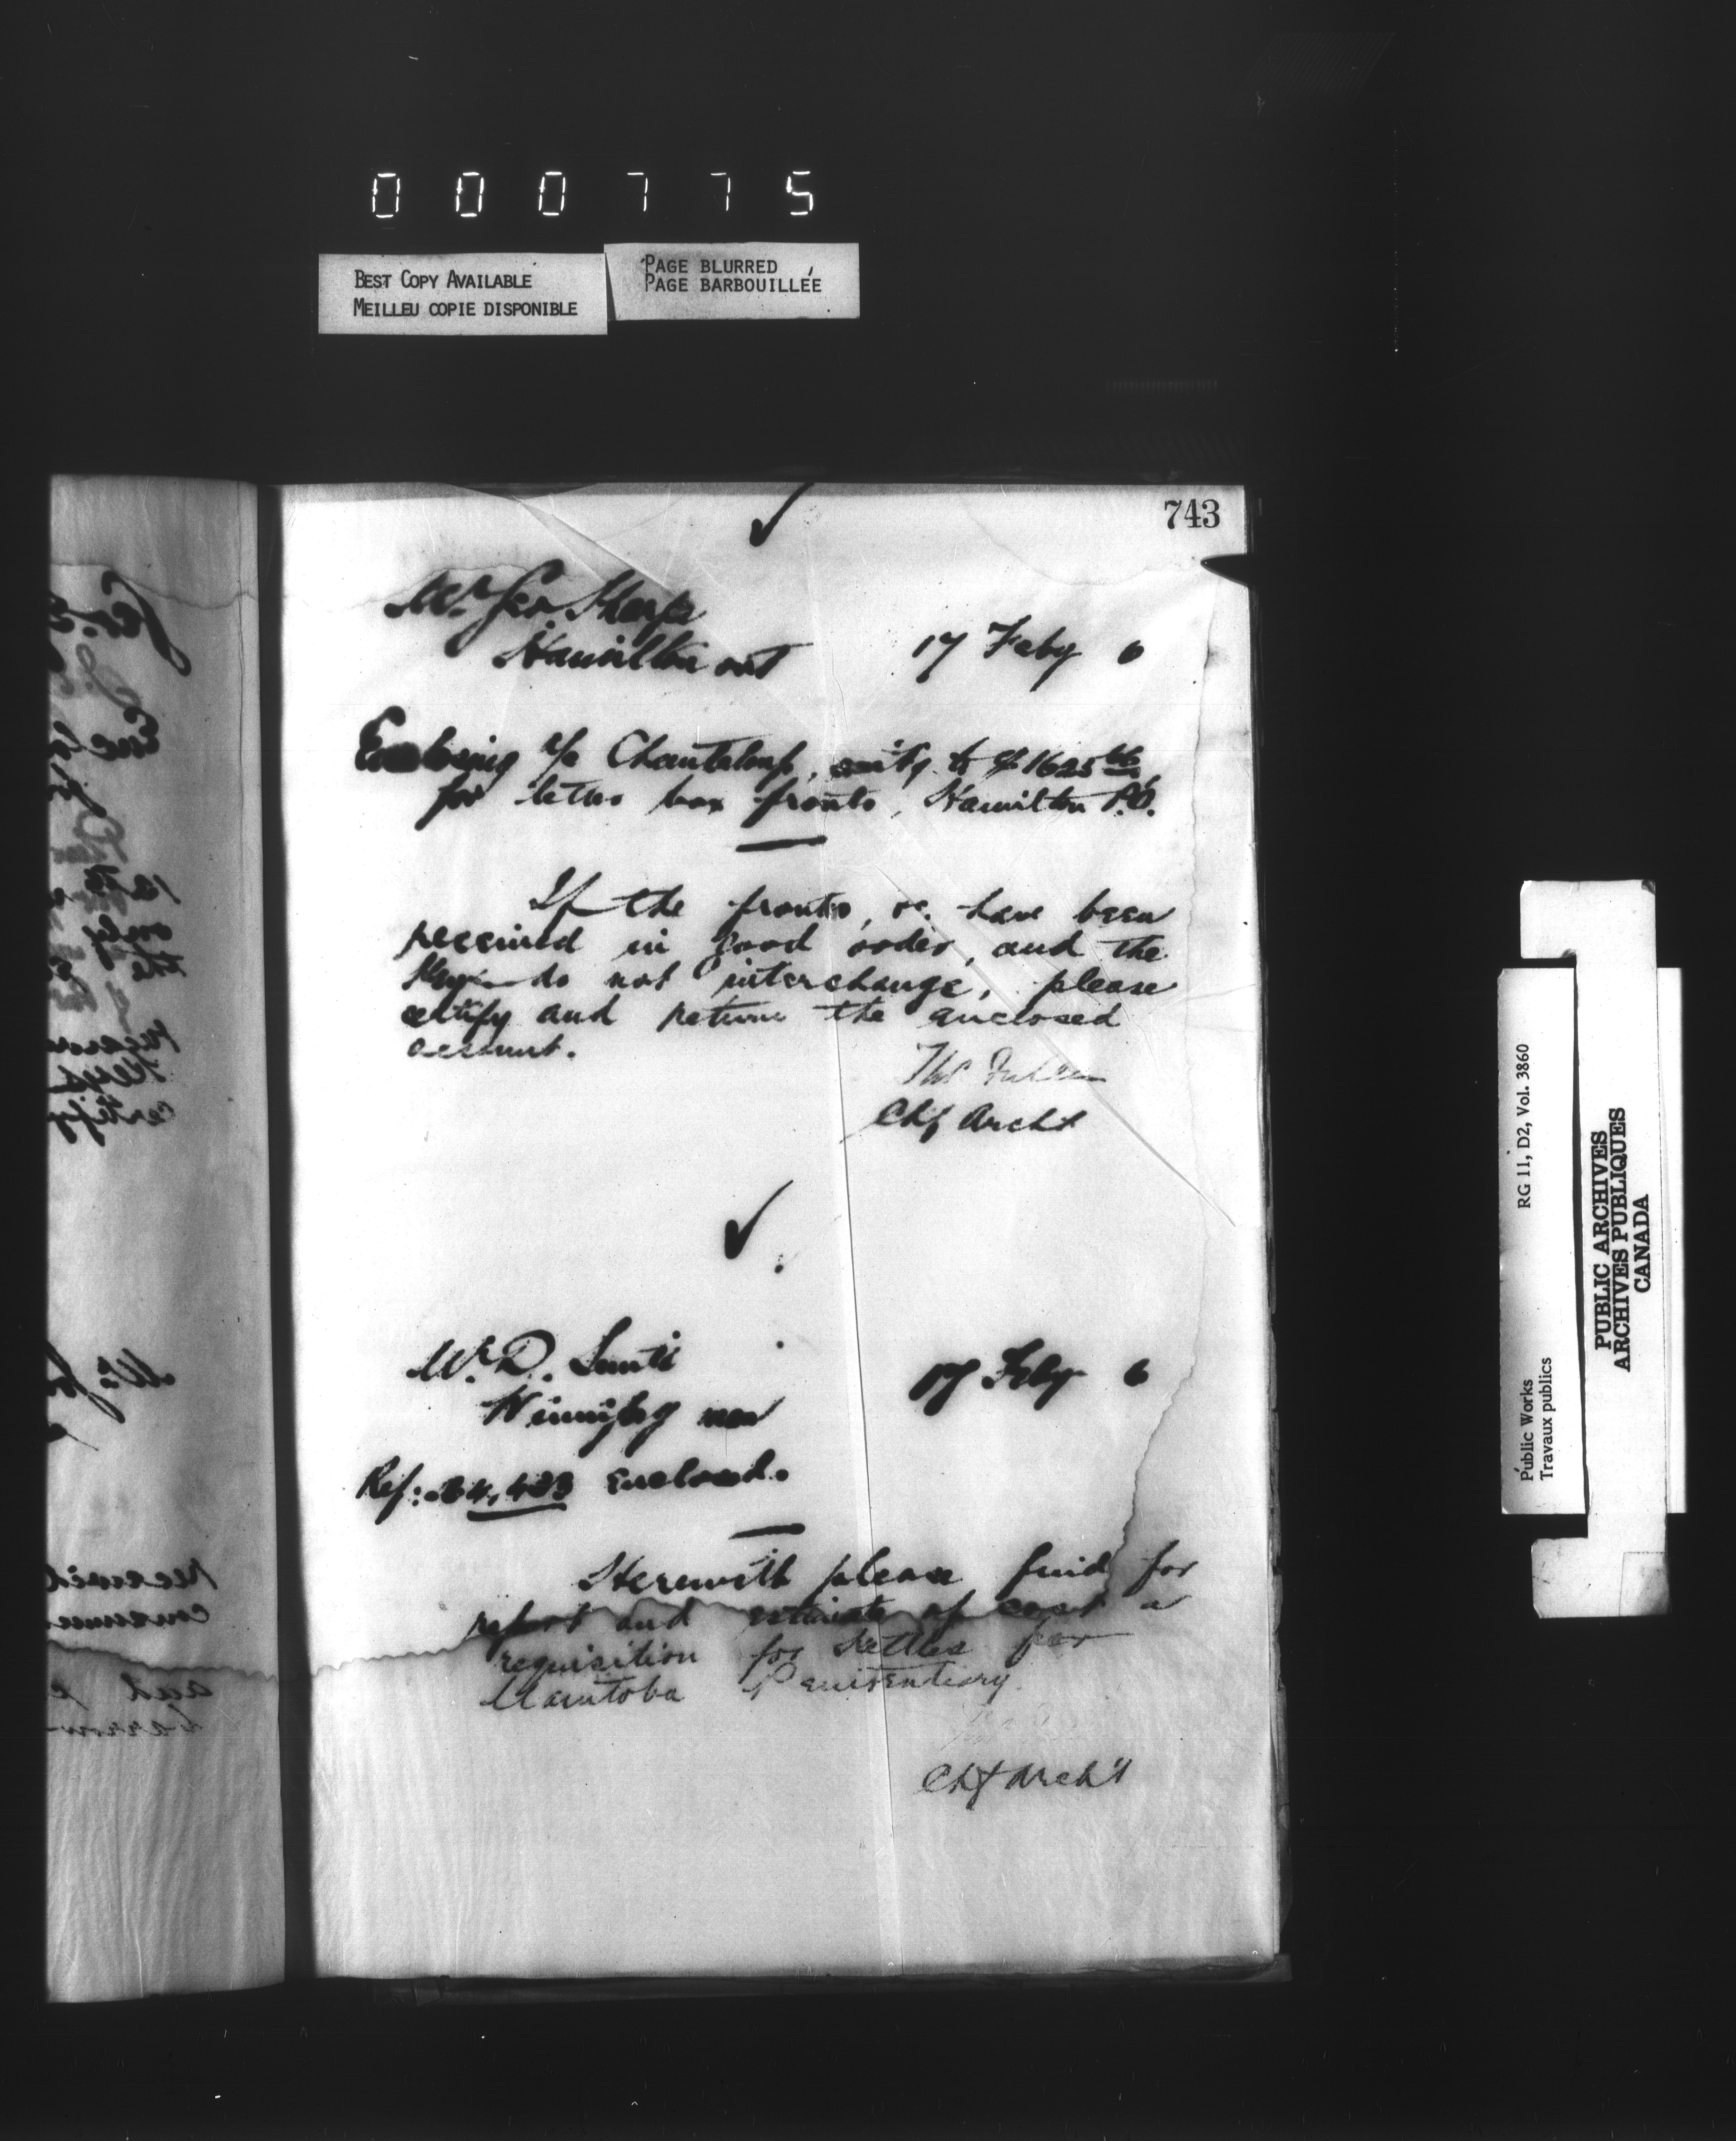 000775
BEST COPY AVAILABLE
MEILLEU COPIE DISPONIBLE
PAGE BLURRED
PAGE BARBOUILLÉE
743
Mr. Geo. Sharpe
Hamilton ont
17 Feby 6
Enclosing a/c Chanteloup, amtg to $1625
for letter box fronts, Hamilton P.O.
If the fronts, &c. have been
received in good order, and the
Keys do not interchange, please
certify and return the enclosed
account.
Thos Fuller
Chf Archt
Mr. D. Smith
Winnipeg man
17 Feby 6
Ref: Enclosed.
Herewith please find for
report and estimate of cost a
requisition for Kettles for
Manitoba Penitentiary.
Chf Arch't
Public Works
Travaux publics
RG 11, D2, Vol. 3860
PUBLIC ARCHIVES
ARCHIVES PUBLIQUES
CANADA